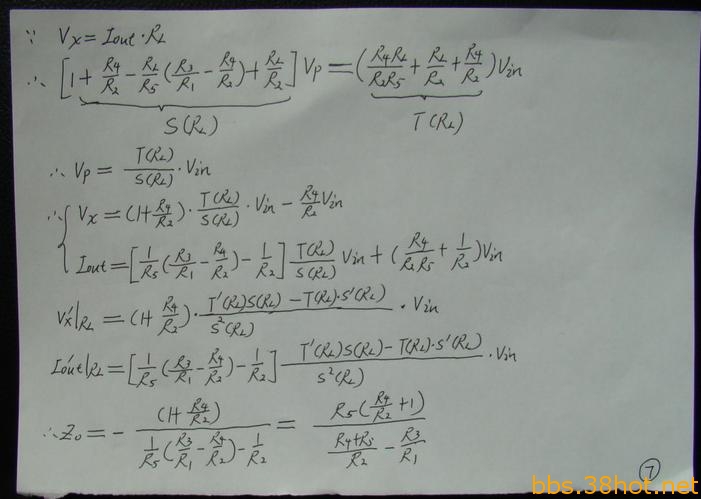 ∵ Vx = Iout·RL
∴ [1 + R4/R2 − RL/R5 (R3/R1 − R4/R2) + RL/R2] Vp = (R4RL/R2R5 + RL/R2 + R4/R2) Vin
S(RL) T(RL)
∴ Vp = T(RL)/S(RL) · Vin
∴ { Vx = (1+ R4/R2) · T(RL)/S(RL) · Vin − R4/R2 Vin
Iout = [1/R5 (R3/R1 − R4/R2) − 1/R2] T(RL)/S(RL) Vin + (R4/R2R5 + 1/R2) Vin
Vx'|RL = (1+ R4/R2) · T'(RL)S(RL) − T(RL)·S'(RL) / S²(RL) · Vin
Iout'|RL = [1/R5 (R3/R1 − R4/R2) − 1/R2] T'(RL)S(RL) − T(RL)·S'(RL) / S²(RL) · Vin
∴ Zo = − (1+ R4/R2) / 1/R5 (R3/R1 − R4/R2) − 1/R2 = R5(R4/R2 + 1) / (R4+R5)/R2 − R3/R1
7
bbs.38hot.net